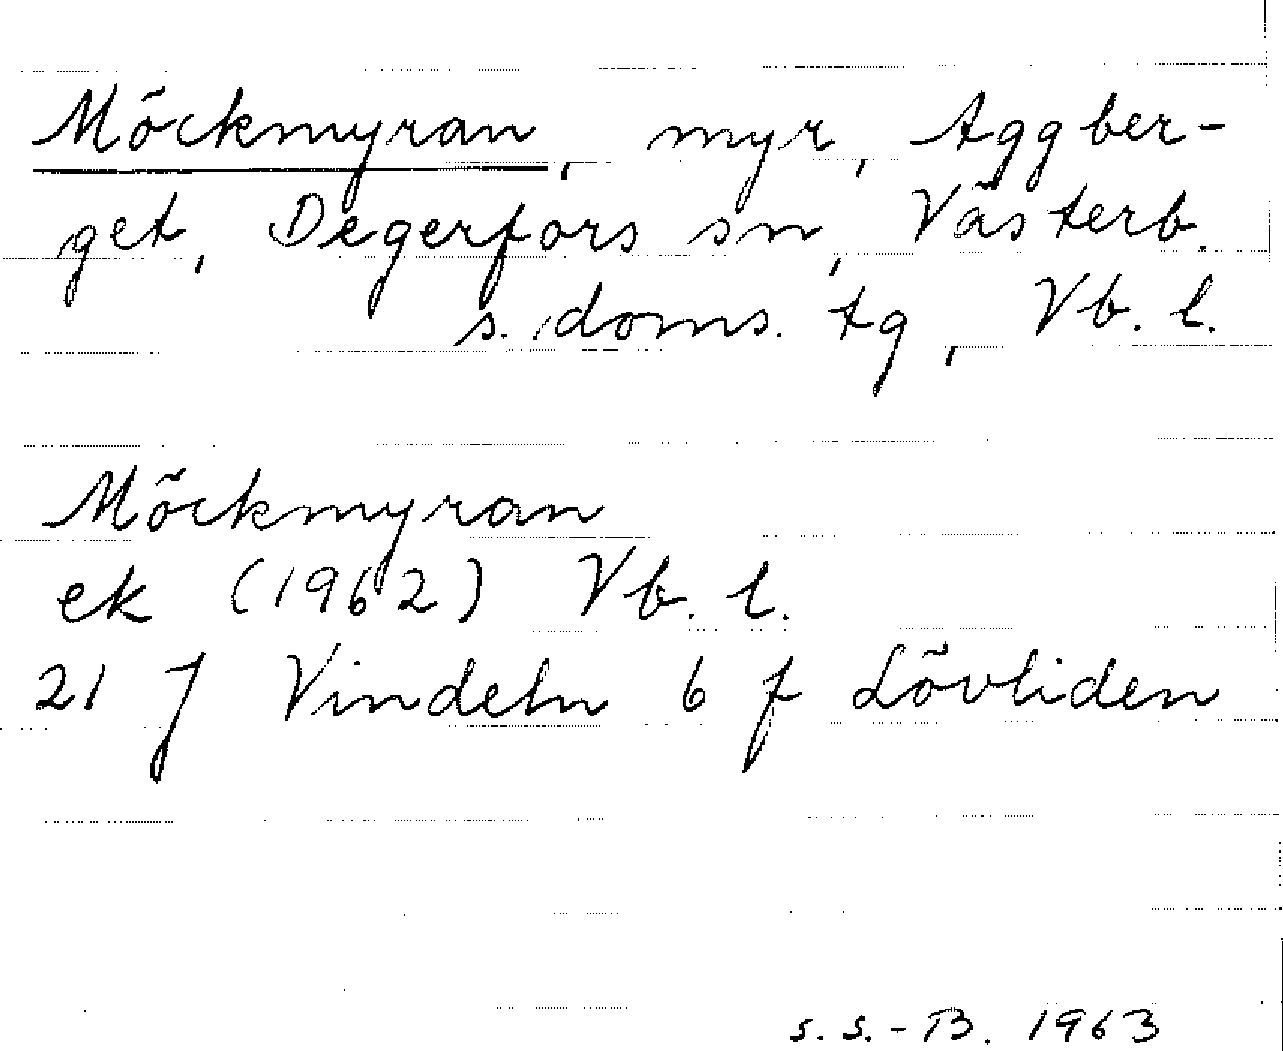 Möckmyran, myr, Aggber-
get, Degerfors sn, Västerb.
s. doms. tg, Vb. l.
Möckmyran
ek (1962) Vb. l.
21 J Vindeln 6 f Lövliden
S. S.-B. 1963